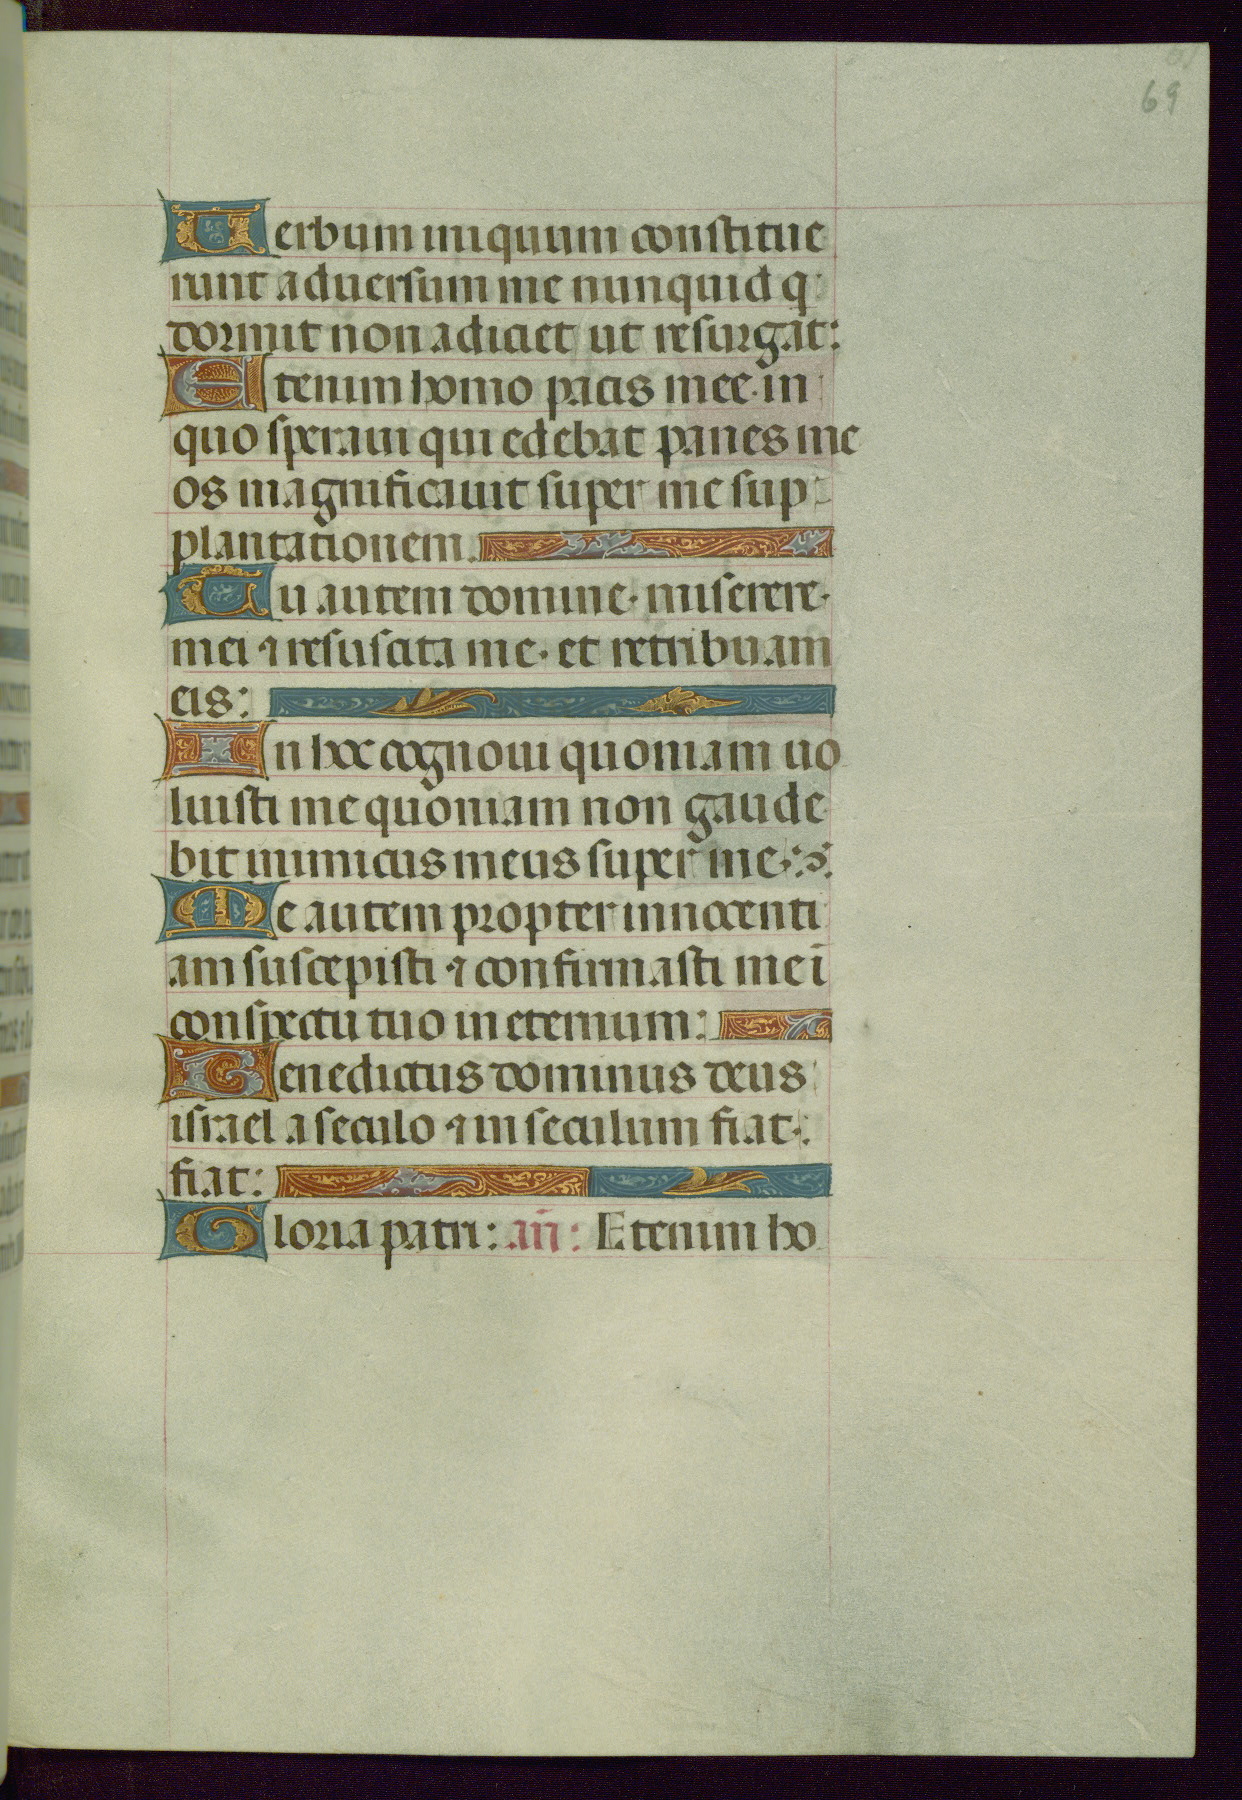 69
Uerbum iniquum constitue
runt aduersum me nunquid q
dormit non adiciet ut resurgat:
Etenim homo pacis mee · in
quo speraui qui edebat panes me
os magnificauit super me sup
plantationem.
Tu autem domine · miserere ·
mei ⁊ resuscita me · et retribuam
eis:
In hoc cognoui quoniam uo
luisti me quoniam non gaude
bit inimicus meus super me:
Me autem propter innocenti
am suscepisti ⁊ confirmasti me ī
conspectu tuo in eternum:
Benedictus dominus deus
israel a seculo ⁊ in seculum fiat:
fiat:
Gloria patri: an̄: Etenim ho